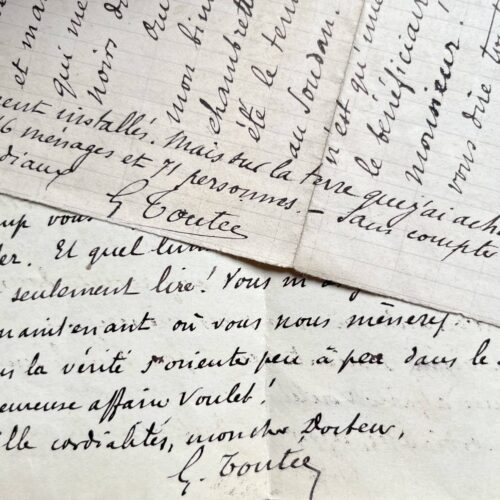 et ma
qui me
noirs d
mon bin
chambrett
été le ter
au Soudan.
n'est qu'un
le bénéficiair
monsieur!
vous dire to
ent installés. Mais sur la terre que j'ai ach
6 ménages et 71 personnes. – Sans compte
diaux
G Toutée
up vous
er. Et quel
seulement lire! Vous m
maintenant où vous nous mènerez.
la vérité s'oriente peu à peu dans le
eureuse affaire Voulet!
ille cordialités, mon cher Docteur,
G. Toutée